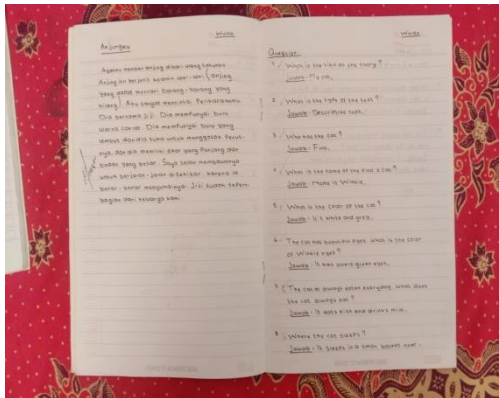 Anjingku
Ayahku memberi anjing dihari ulang tahunku
Anjing itu berjenis
yang dapat mencari barang-barang yang
hilang). Aku sangat mencintai Peliharaanku.
Dia bernama Jiji. Dia mempunyai bulu
warna coklat. Dia mempunyai bulu yang
lembut dan dia suka untuk menggosok Perut-
nya, dan dia memiliki ekor yang Panjang dan
badan yang besar. Saya selalu membawanya
untuk berjalan-jalan disekitar. karena ia
benar-benar menyukainya. Jiji sudah seperti
bagian dari keluarga kami
Question:
1. What is the title of the story?
Jawab:
2. What is the type of the text?
Jawab: Descriptive text.
3. Who has the cat?
Jawab:
4. What is the name of the cat?
Jawab: Name is Winkie.
5. What is the color of the cat?
Jawab: It's white and grey.
6. The cat has beautiful eyes. what is the color
of Winkie eyes?
Jawab: It has green eyes.
7. The cat always eaten everyday. what does
the cat always eat?
Jawab: It eats fish and drinks milk.
8. Where the cat sleeps?
Jawab: It sleeps in a small basket near.